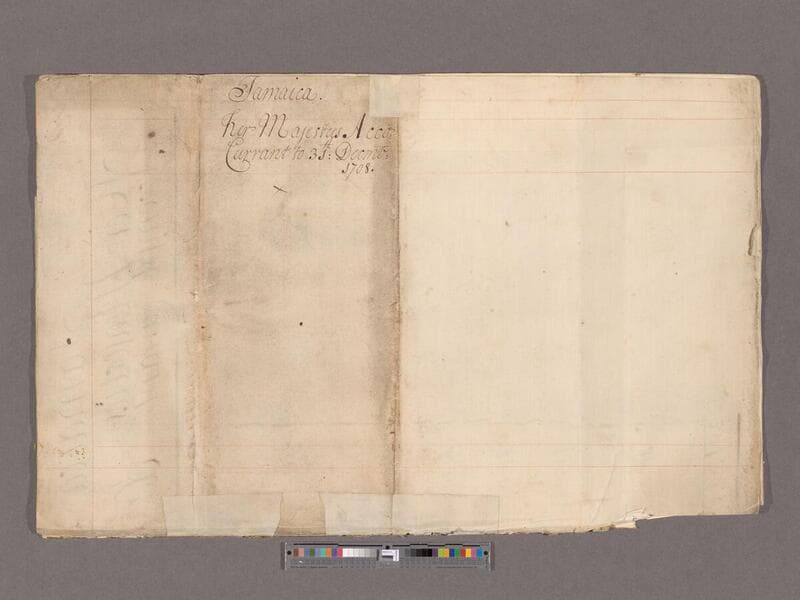 Jamaica.
Her Majestys Acco.t
Currant to 31:th Decemb.r
1708.